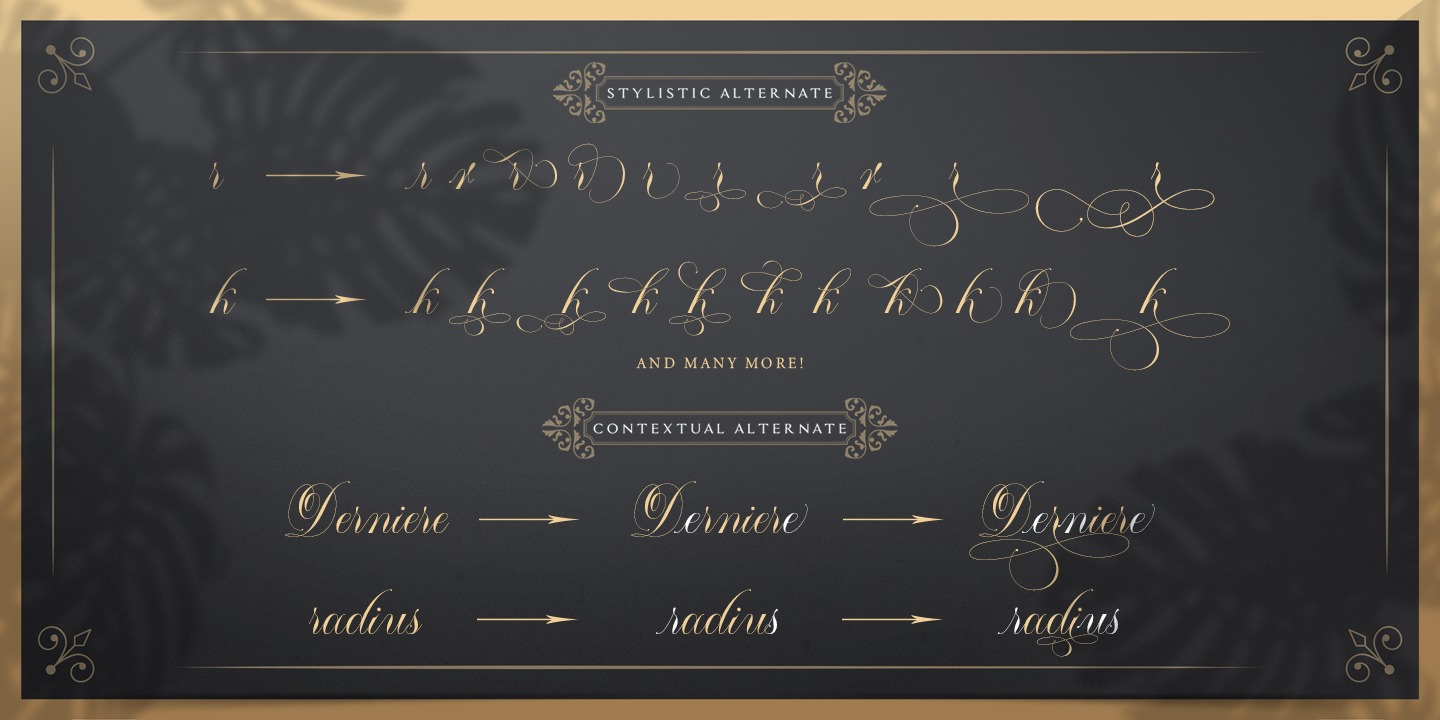 STYLISTIC ALTERNATE
r r r r r r r r r r r
k k k k k k k k k k k k
AND MANY MORE!
CONTEXTUAL ALTERNATE
Derniere Derniere Derniere
radius radius radius